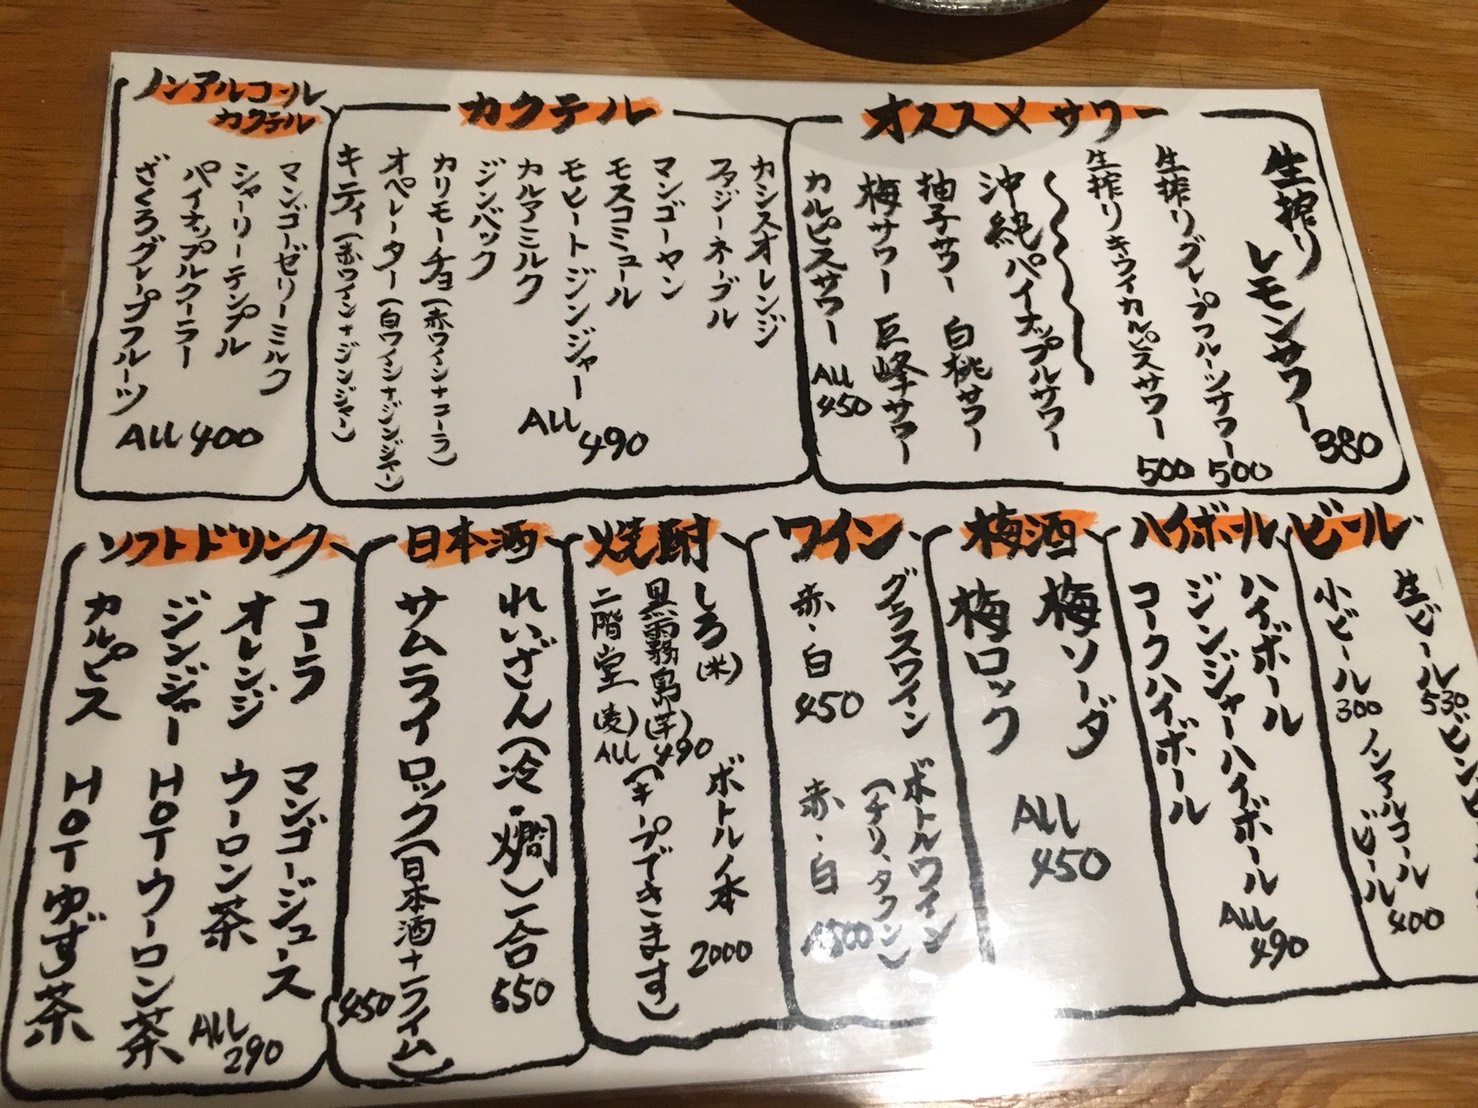 オススメサワー
生搾り
レモンサワー
380
生搾りグレープフルーツサワー
500
生搾りキウイカルピスサワー
500
沖縄パイナップルサワー
柚子サワー 白桃サワー
梅サワー 巨峰サワー
カルピスサワー
ALL
450
カクテル
カシスオレンジ
ファジーネーブル
マンゴーヤン
モスコミュール
モヒートジンジャー
カルアミルク
ジンバック
カリモーチョ(赤ワイン+コーラ)
オペレーター(白ワイン+ジンジャー)
キティ(赤ワイン+ジンジャー)
ALL
490
ノンアルコール
カクテル
マンゴーゼリーミルク
シャーリーテンプル
パイナップルクーラー
ざくろグレープフルーツ
ALL 400
ビール
生ビール
530
小ビール
300
ノンアルコール
ビール
400
ハイボール
ハイボール
ジンジャーハイボール
コークハイボール
ALL
490
梅酒
梅ソーダ
梅ロック
ALL
450
ワイン
グラスワイン
赤・白
450
ボトルワイン
(チリ、タクン)
赤・白
焼酎
しろ(米)
黒霧島(芋)
二階堂(麦)
ALL 490
ボトル1本
2000
(キープできます)
日本酒
れいざん(冷・燗)一合
550
サムライロック(日本酒+ライム)
450
ソフトドリンク
コーラ マンゴージュース
オレンジ ウーロン茶
ジンジャー HOTウーロン茶
カルピス HOTゆず茶
ALL
290